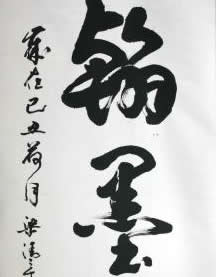 翰墨
歲在己丑荷月 梁